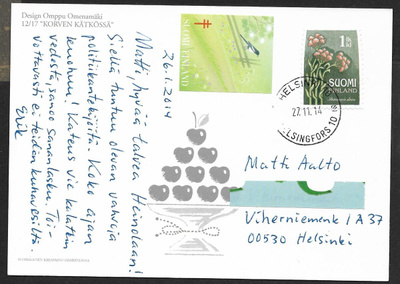 Design Omppu Omenamäki
12/17 "KORVEN KÄTKÖSSÄ"
26.1.2014
Matti, hyvää talvea Heinolaan!
Siellä tuntuu olevan vahvoja
politiikantekijöitä. Koko ajan
Kateus vie kalatkin
vedestä, sanoo sananlasku. Toi-
vottavasti ei teidän kuhavesiltä.
Erik
SUOMI FINLAND
1 LK KL
SUOMI
FINLAND
HELSINKI
27.11.14
HELSINGFORS 10
Matti Aalto
Viherniemenk 1 A 37
00530 Helsinki